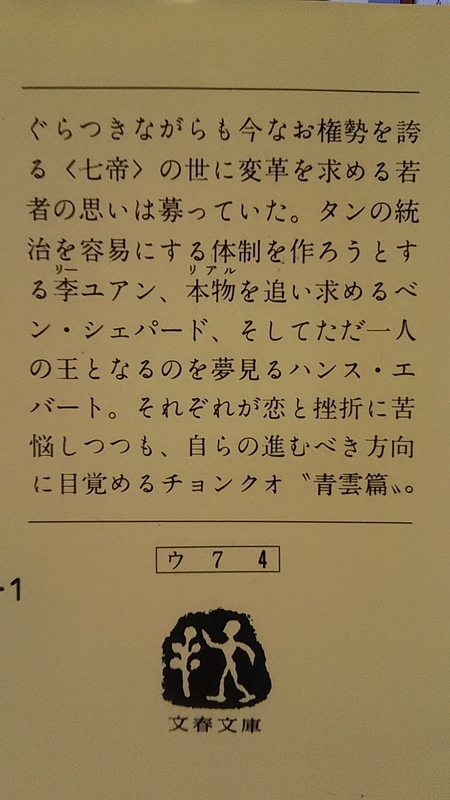 ぐらつきながらも今なお権勢を誇
る〈七帝〉の世に変革を求める若
者の思いは募っていた。タンの統
治を容易にする体制を作ろうとす
リー リアル
る李ユアン、本物を追い求めるベ
ン・シェパード、そしてただ一人
の王となるのを夢見るハンス・エ
バート。それぞれが恋と挫折に苦
悩しつつも、自らの進むべき方向
に目覚めるチョンクオ〝青雲篇〟。
ウ 7 4
-1
文春文庫